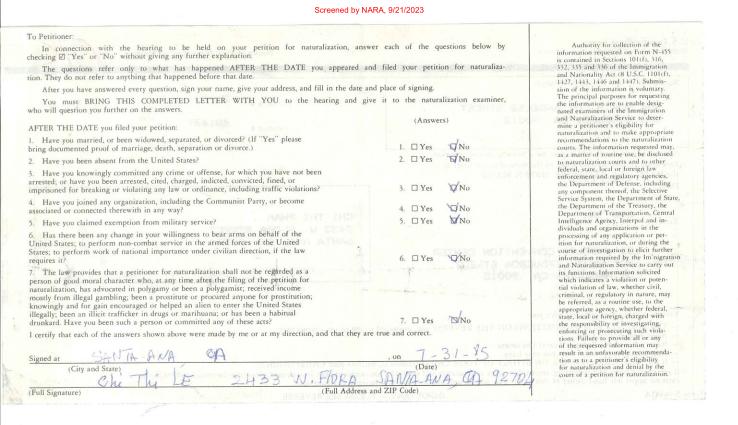 Screened by NARA, 9/21/2023
To Petitioner:
In connection with the hearing to be held on your petition for naturalization, answer each of the questions below by
checking ☑ "Yes" or "No" without giving any further explanation.
The questions refer only to what has happened AFTER THE DATE you appeared and filed your petition for naturaliza-
tion. They do not refer to anything that happened before that date.
After you have answered every question, sign your name, give your address, and fill in the date and place of signing.
You must BRING THIS COMPLETED LETTER WITH YOU to the hearing and give it to the naturalization examiner,
who will question you further on the answers.
(Answers)
AFTER THE DATE you filed your petition:
1. Have you married, or been widowed, separated, or divorced? (If "Yes" please
bring documented proof of marriage, death, separation or divorce.)
1. ☐ Yes ☑ No
2. Have you been absent from the United States?
2. ☐ Yes ☑ No
3. Have you knowingly committed any crime or offense, for which you have not been
arrested; or have you been arrested, cited, charged, indicted, convicted, fined, or
imprisoned for breaking or violating any law or ordinance, including traffic violations?
3. ☐ Yes ☑ No
4. Have you joined any organization, including the Communist Party, or become
associated or connected therewith in any way?
4. ☐ Yes ☑ No
5. Have you claimed exemption from military service?
5. ☐ Yes ☑ No
6. Has there been any change in your willingness to bear arms on behalf of the
United States; to perform non-combat service in the armed forces of the United
States; to perform work of national importance under civilian direction, if the law
requires it?
6. ☐ Yes ☑ No
7. The law provides that a petitioner for naturalization shall not be regarded as a
person of good moral character who, at any time after the filing of the petition for
naturalization, has advocated in polygamy or been a polygamist; received income
mostly from illegal gambling; been a prostitute or procured anyone for prostitution;
knowingly and for gain encouraged or helped an alien to enter the United States
illegally; been an illicit trafficker in drugs or marihuana; or has been a habitual
drunkard. Have you been such a person or committed any of these acts?
7. ☐ Yes ☑ No
I certify that each of the answers shown above were made by me or at my direction, and that they are true and correct.
Signed at SANTA-ANA, CA , on 7-31-85
(City and State) (Date)
Chi Thi LE 2433 W. FLORA SANTA-ANA, CA 92704
(Full Signature) (Full Address and ZIP Code)
Authority for collection of the
information requested on Form N-455
is contained in Sections 101(f), 316,
332, 335 and 336 of the Immigration
and Nationality Act (8 U.S.C. 1101(f),
1427, 1443, 1446 and 1447). Submis-
sion of the information is voluntary.
The principal purposes for requesting
the information are to enable desig-
nated examiners of the Immigration
and Naturalization Service to deter-
mine a petitioner's eligibility for
naturalization and to make appropriate
recommendations to the naturalization
courts. The information requested may,
as a matter of routine use, be disclosed
to naturalization courts and to other
federal, state, local or foreign law
enforcement and regulatory agencies,
the Department of Defense, including
any component thereof, the Selective
Service System, the Department of State,
the Department of the Treasury, the
Department of Transportation, Central
Intelligence Agency, Interpol and in-
dividuals and organizations in the
processing of any application or peti-
tion for naturalization, or during the
course of investigation to elicit further
information required by the Immigration
and Naturalization Service to carry out
its functions. Information solicited
which indicates a violation or poten-
tial violation of law, whether civil,
criminal, or regulatory in nature, may
be referred, as a routine use, to the
appropriate agency, whether federal,
state, local or foreign, charged with
the responsibility of investigating,
enforcing or prosecuting such viola-
tions. Failure to provide all or any
of the requested information may
result in an unfavorable recommenda-
tion as to a petitioner's eligibility
for naturalization and denial by the
court of a petition for naturalization.